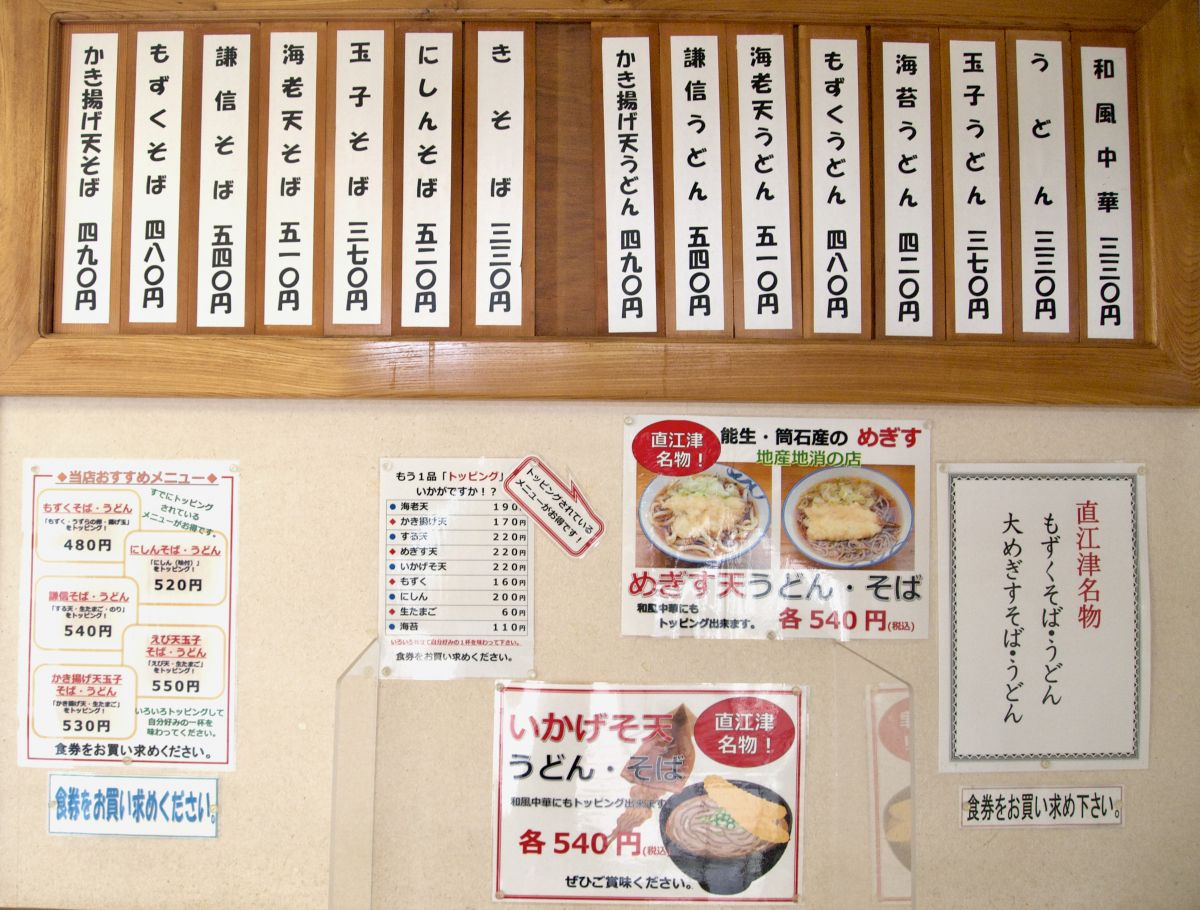 和風中華 三三〇円
うどん 三三〇円
玉子うどん 三七〇円
海苔うどん 四二〇円
もずくうどん 四八〇円
海老天うどん 五一〇円
謙信うどん 五四〇円
かき揚げ天うどん 四九〇円
きそば 三三〇円
にしんそば 五二〇円
玉子そば 三七〇円
海老天そば 五一〇円
謙信そば 五四〇円
もずくそば 四八〇円
かき揚げ天そば 四九〇円
◆当店おすすめメニュー◆
すでにトッピング
されている
メニューがお得です。
もずくそば・うどん
「もずく・うずらの卵・揚げ玉」
をトッピング!
480円
にしんそば・うどん
「にしん(味付)」
をトッピング!
520円
謙信そば・うどん
「する天・生たまご・のり」
をトッピング!
540円
えび天玉子
そば・うどん
「えび天・生たまご」
をトッピング!
550円
かき揚げ天玉子
そば・うどん
「かき揚げ天・生たまご」
をトッピング!
530円
いろいろトッピングして
自分好みの一杯を
味わってください。
食券をお買い求めください。
食券をお買い求めください。
もう1品「トッピング」
いかがですか!?
海老天 190
かき揚げ天 170円
する天 220円
めぎす天 220円
いかげそ天 220円
もずく 160円
にしん 200円
生たまご 60円
海苔 110円
いろいろ乗せて自分好みの1杯を味わって下さい。
食券をお買い求めください。
トッピングされている
メニューがお得です!
直江津
名物!
能生・筒石産の めぎす
地産地消の店
めぎす天うどん・そば
和風中華にも
トッピング出来ます。
各540円(税込)
いかげそ天
うどん・そば
直江津
名物!
和風中華にもトッピング出来ます
各540円(税込)
ぜひご賞味ください。
直江津名物
もずくそば・うどん
大めぎすそば・うどん
食券をお買い求め下さい。